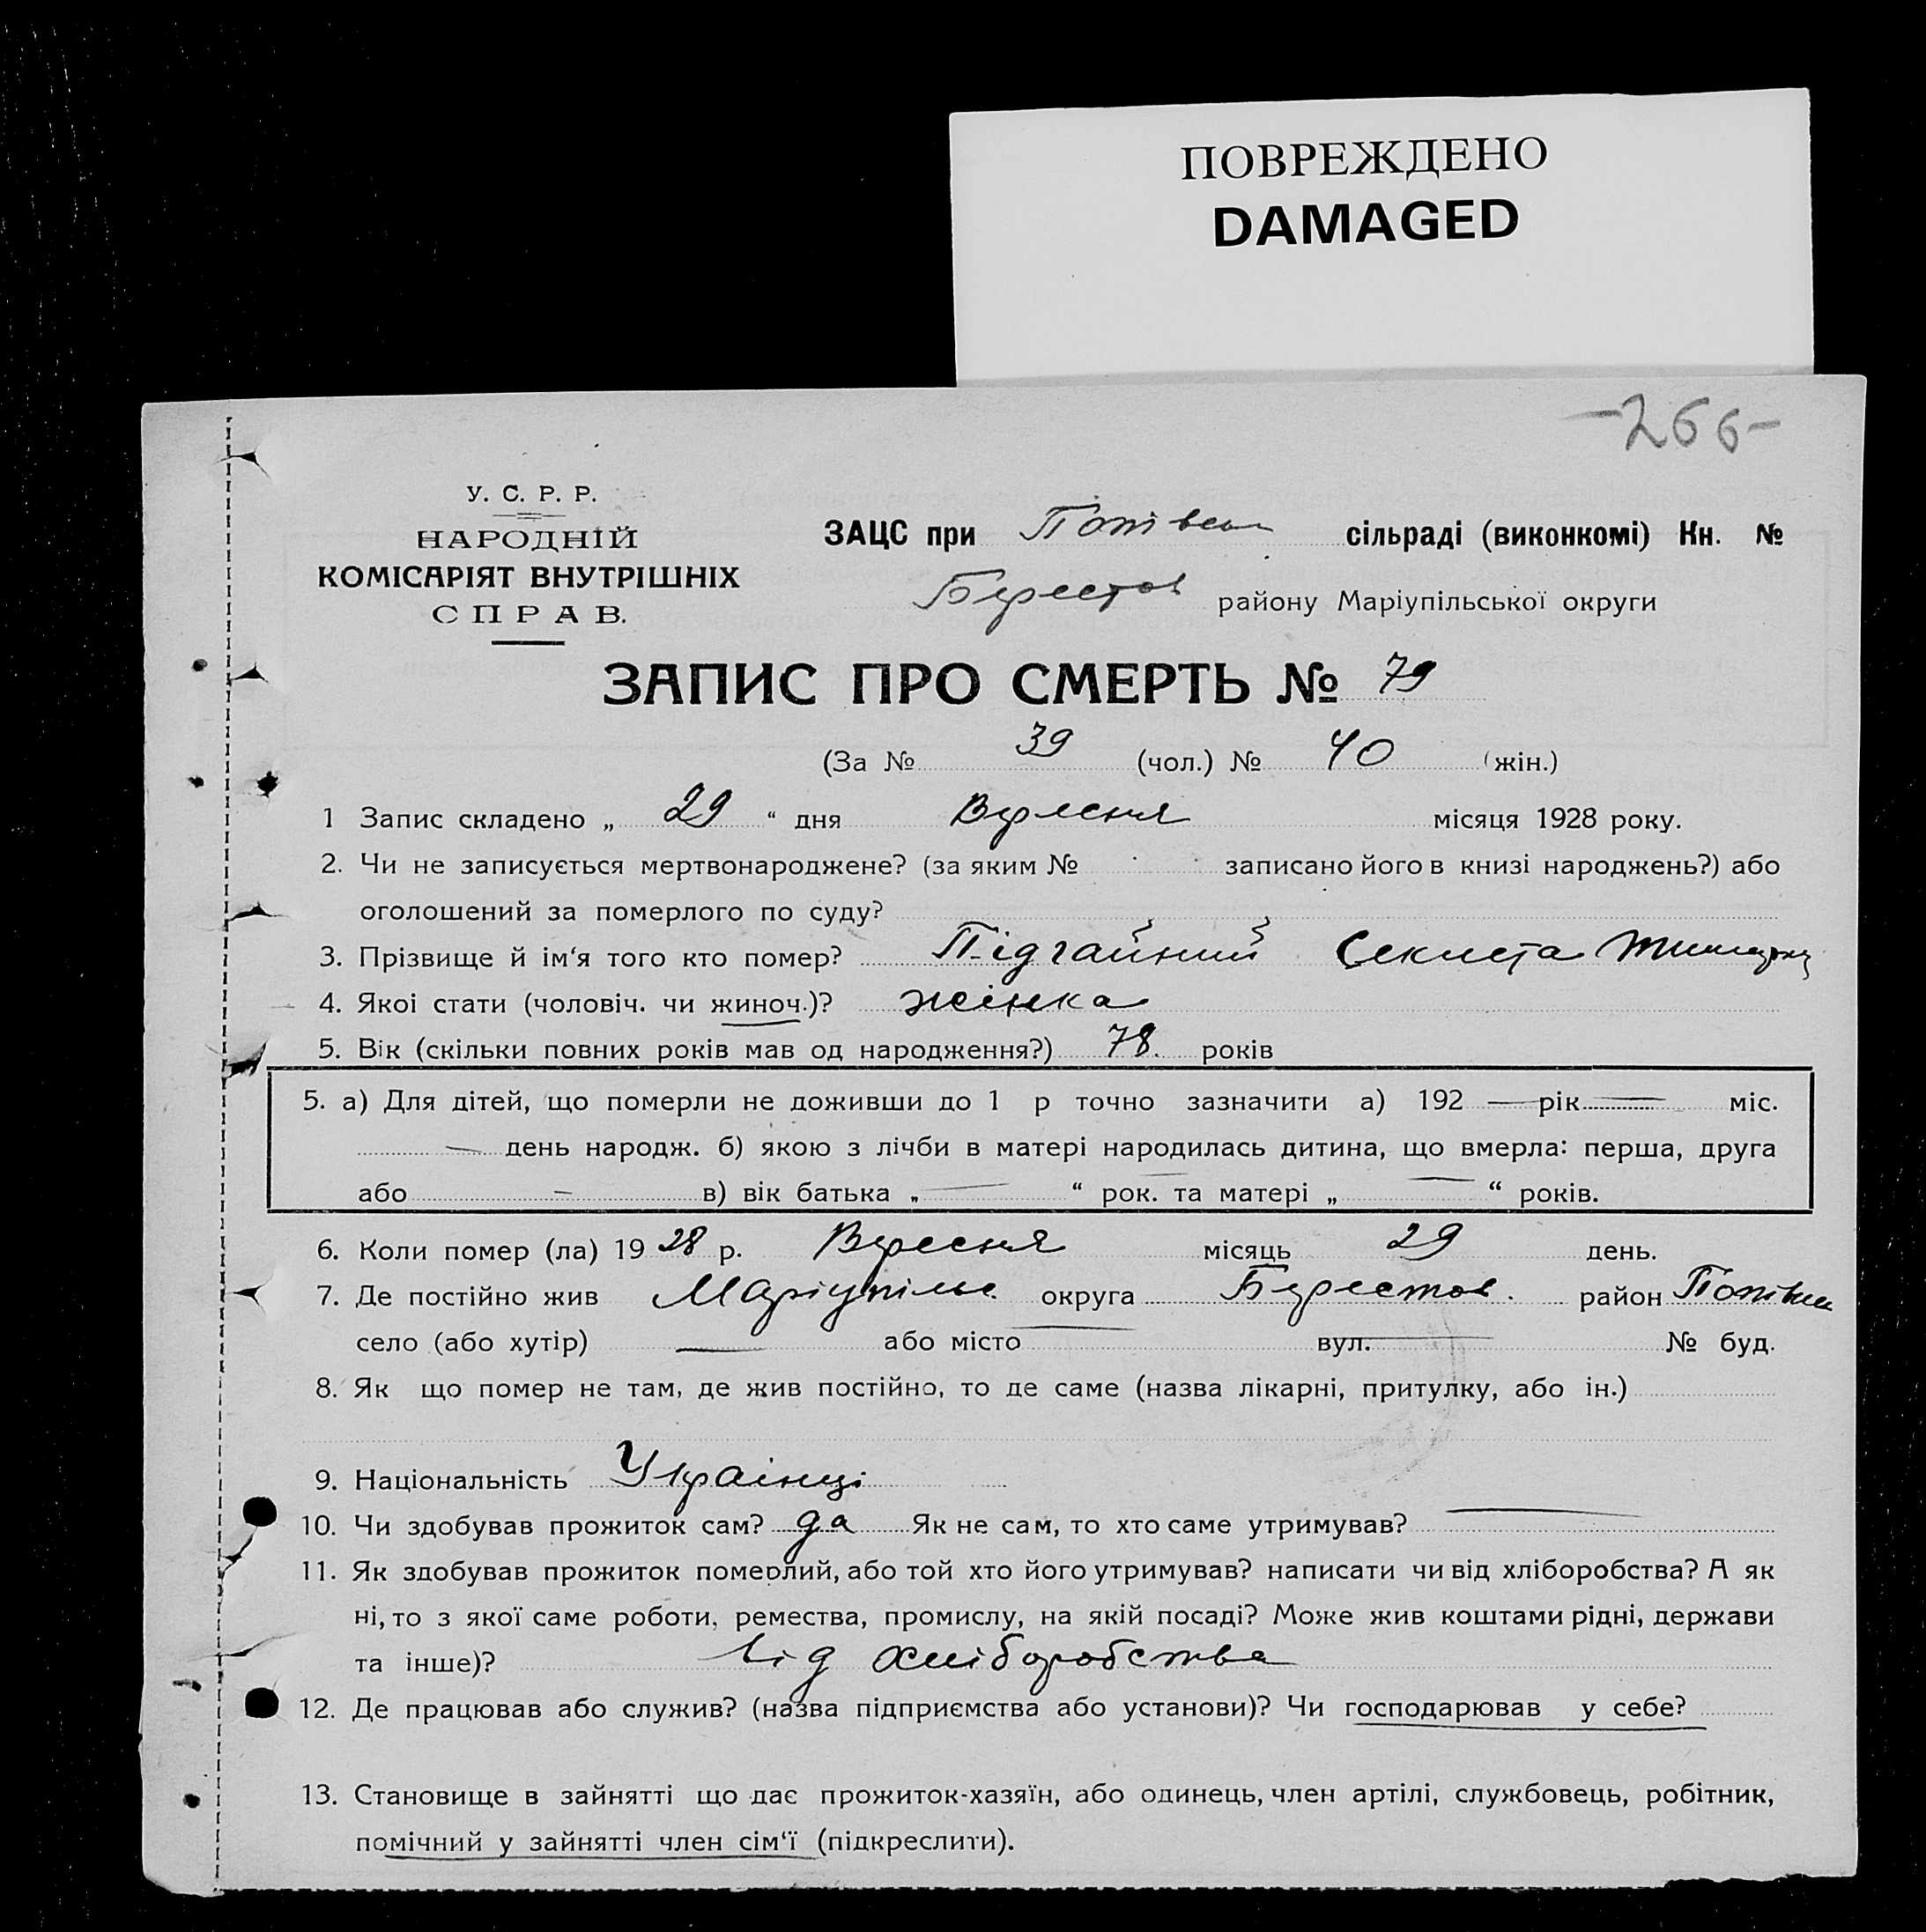 ПОВРЕЖДЕНО
DAMAGED
-266-
У. С. Р. Р.
НАРОДНІЙ
КОМІСАРІЯТ ВНУТРІШНІХ
СПРАВ.
ЗАЦС при Потівськ сільраді (виконкомі) Кн. №
Берестов району Маріупільської округи
ЗАПИС ПРО СМЕРТЬ № 79
(За № 39 (чол.) № 40 (жін.)
1 Запис складено „ 29 “ дня Вересня місяця 1928 року.
2. Чи не записується мертвонароджене? (за яким № записано його в книзі народжень?) або
оголошений за померлого по суду?
3. Прізвище й ім‘я того кто помер? Підгайний Секлета
4. Якоі стати (чоловіч. чи жиноч.)? жінка
5. Вік (скільки повних років мав од народження?) 78. років
5. а) Для дітей, що померли не доживши до 1 р точно зазначити а) 192 — рік — міс.
— день народж. б) якою з лічби в матері народилась дитина, що вмерла: перша, друга
або — в) вік батька „ — “ рок. та матері „ — “ років.
6. Коли помер (ла) 19 28 р. Вересня місяць 29 день.
7. Де постійно жив Маріупільс. округа Берестов. район
село (або хутір) — або місто — вул. — № буд.
8. Як що помер не там, де жив постійно, то де саме (назва лікарні, притулку, або ін.)
9. Національність Українці
10. Чи здобував прожиток сам? да Як не сам, то хто саме утримував? —
11. Як здобував прожиток померлий, або той хто його утримував? написати чи від хліборобства? А як
ні, то з якої саме роботи, ремества, промислу, на якій посаді? Може жив коштами рідні, держави
та інше)? від хліборобства
12. Де працював або служив? (назва підприємства або установи)? Чи господарював у себе?
13. Становище в зайнятті що дає прожиток-хазяїн, або одинець, член артілі, службовець, робітник,
помічний у зайнятті член сім‘ї (підкреслити).